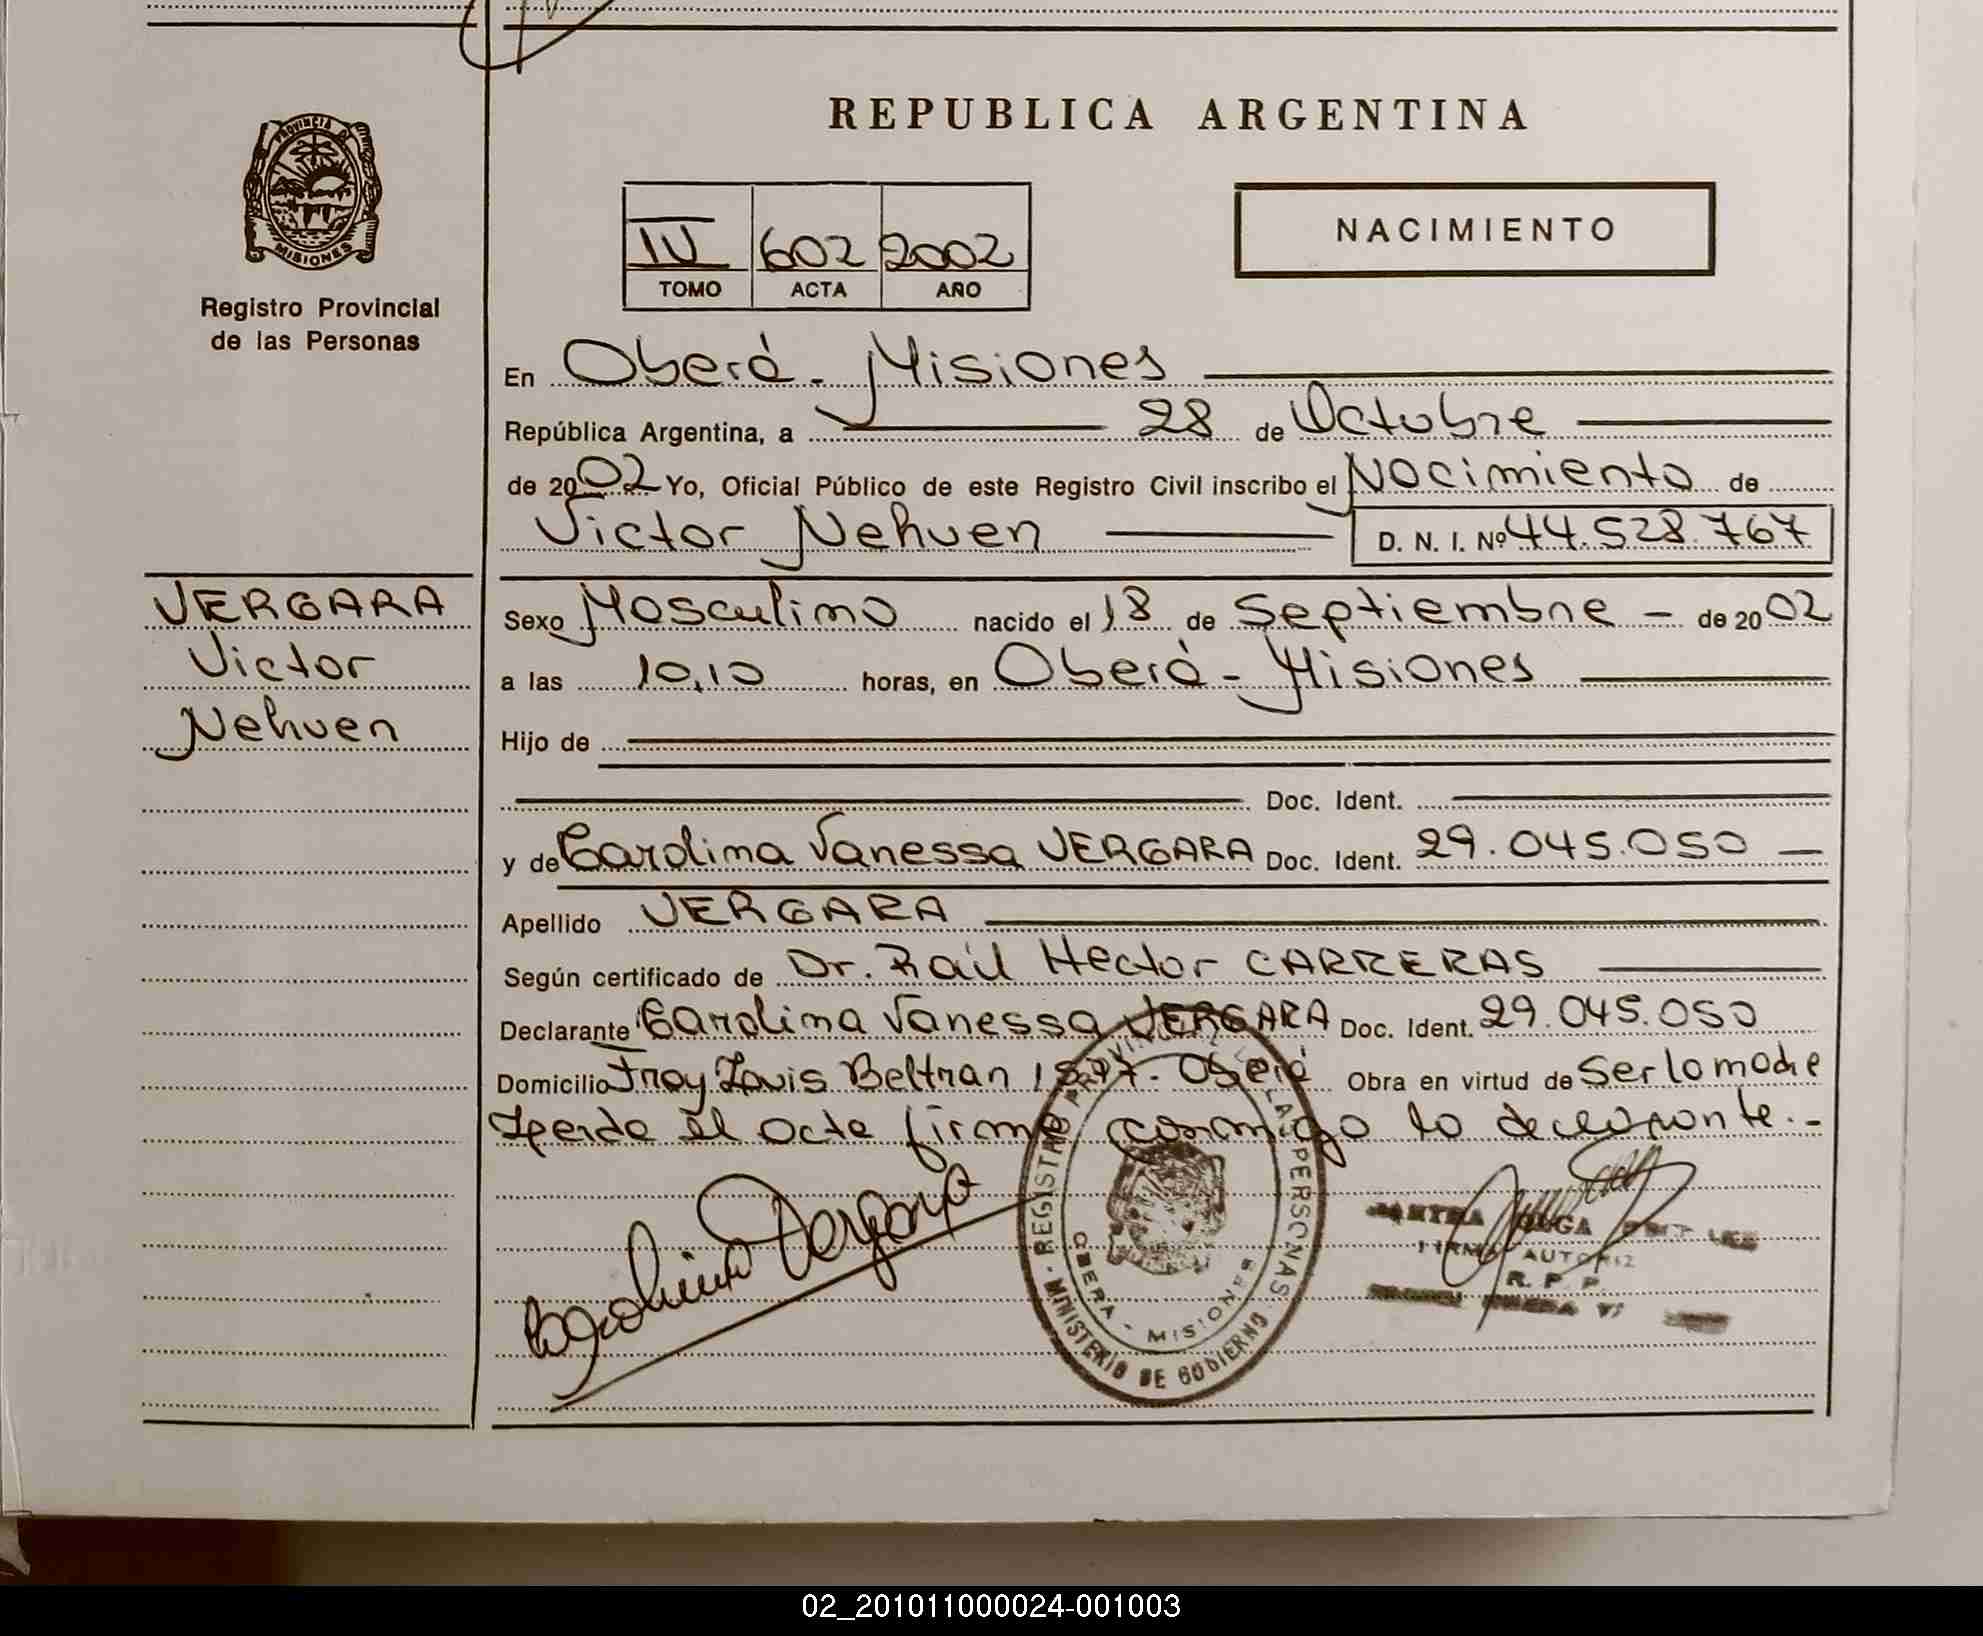 REPUBLICA ARGENTINA
PROVINCIA D
MISIONES
Registro Provincial
de las Personas
IV 602 2002
TOMO ACTA AÑO
NACIMIENTO
En Oberá - Misiones
República Argentina, a 28 de Octubre
de 2002 Yo, Oficial Público de este Registro Civil inscribo el Nacimiento de
Victor Nehuen D. N. I. Nº 44.528.767
VERGARA
Victor
Nehuen
Sexo Masculino nacido el 18 de Septiembre - de 2002
a las 10,10 horas, en Oberá - Misiones
Hijo de
Doc. Ident.
y de Carolina Vanessa VERGARA Doc. Ident. 29.045.050
Apellido VERGARA
Según certificado de Dr. Raúl Hector CARRERAS
Declarante Carolina Vanessa VERGARA Doc. Ident. 29.045.050
Domicilio Fray Louis Beltran Oberá Obra en virtud de Ser la madre
Leida el acta firma conmigo la declarante.-
Carolina Vergara
REGISTRO PROVINCIAL LAS PERSONAS
OBERA - MISIONES
- MINISTERIO DE GOBIERNO
OLGA
FIRMA AUTORIZ
R. P. P.
02_201011000024-001003